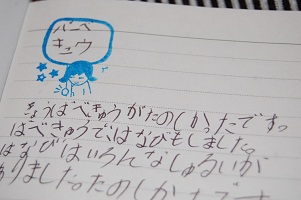 バーベ
キュウ
きょうばべきゅうがたのしかったです。
ばべきゅうで、はなびもしました。
はなびはいろんなしゅるいが
ありました。たのしかったでさ